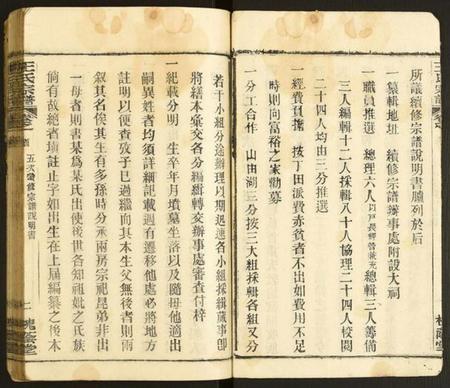 所議續修宗譜說明書臚列於后
一纂輯地址　續修宗譜辦事處附設大祠
一職員推選　總理六人以戶長經管兼充總輯三人籌備
三人編輯十二人採輯八十人協理二十四人校閱
二十四人均由三分推選
一經費買擔　按丁田派費赤貧者不出如費用不足
時則向富裕之家勸募
一分工合作　山由湖三分按三大組採輯各組又分
若干小組分途辦理以期迅速各小組採輯蕆事即
將繕本彙交各分編輯轉交辦事處審查付梓
一紀載分明　生卒年月墳墓坐落以及隨母他適出
嗣異姓者均須詳細記載週有遷移他處必將地方
註明以便查攷子已過繼而其本生父無後者則兩
叙其名俟其生有多孫時分承兩房宗祀昆弟非出
一母者則書某為某氏出使後世各知祖妣之氏族
倘有故總者填註止字如出生在上屆編纂之後本
王氏宗譜
卷首
五次續修宗譜說明書
二
槐蔭堂